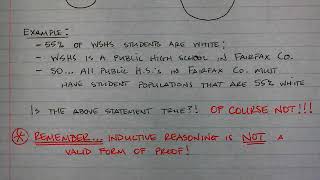 EXAMPLE:
- 55% OF WSHS STUDENTS ARE WHITE;
- WSHS IS A PUBLIC HIGH SCHOOL IN FAIRFAX CO.
- SO... ALL PUBLIC H.S.'S IN FAIRFAX CO. MUST
HAVE STUDENT POPULATIONS THAT ARE 55% WHITE
IS THE ABOVE STATEMENT TRUE?! OF COURSE NOT!!!
* REMEMBER... INDUCTIVE REASONING IS NOT A
VALID FORM OF PROOF!